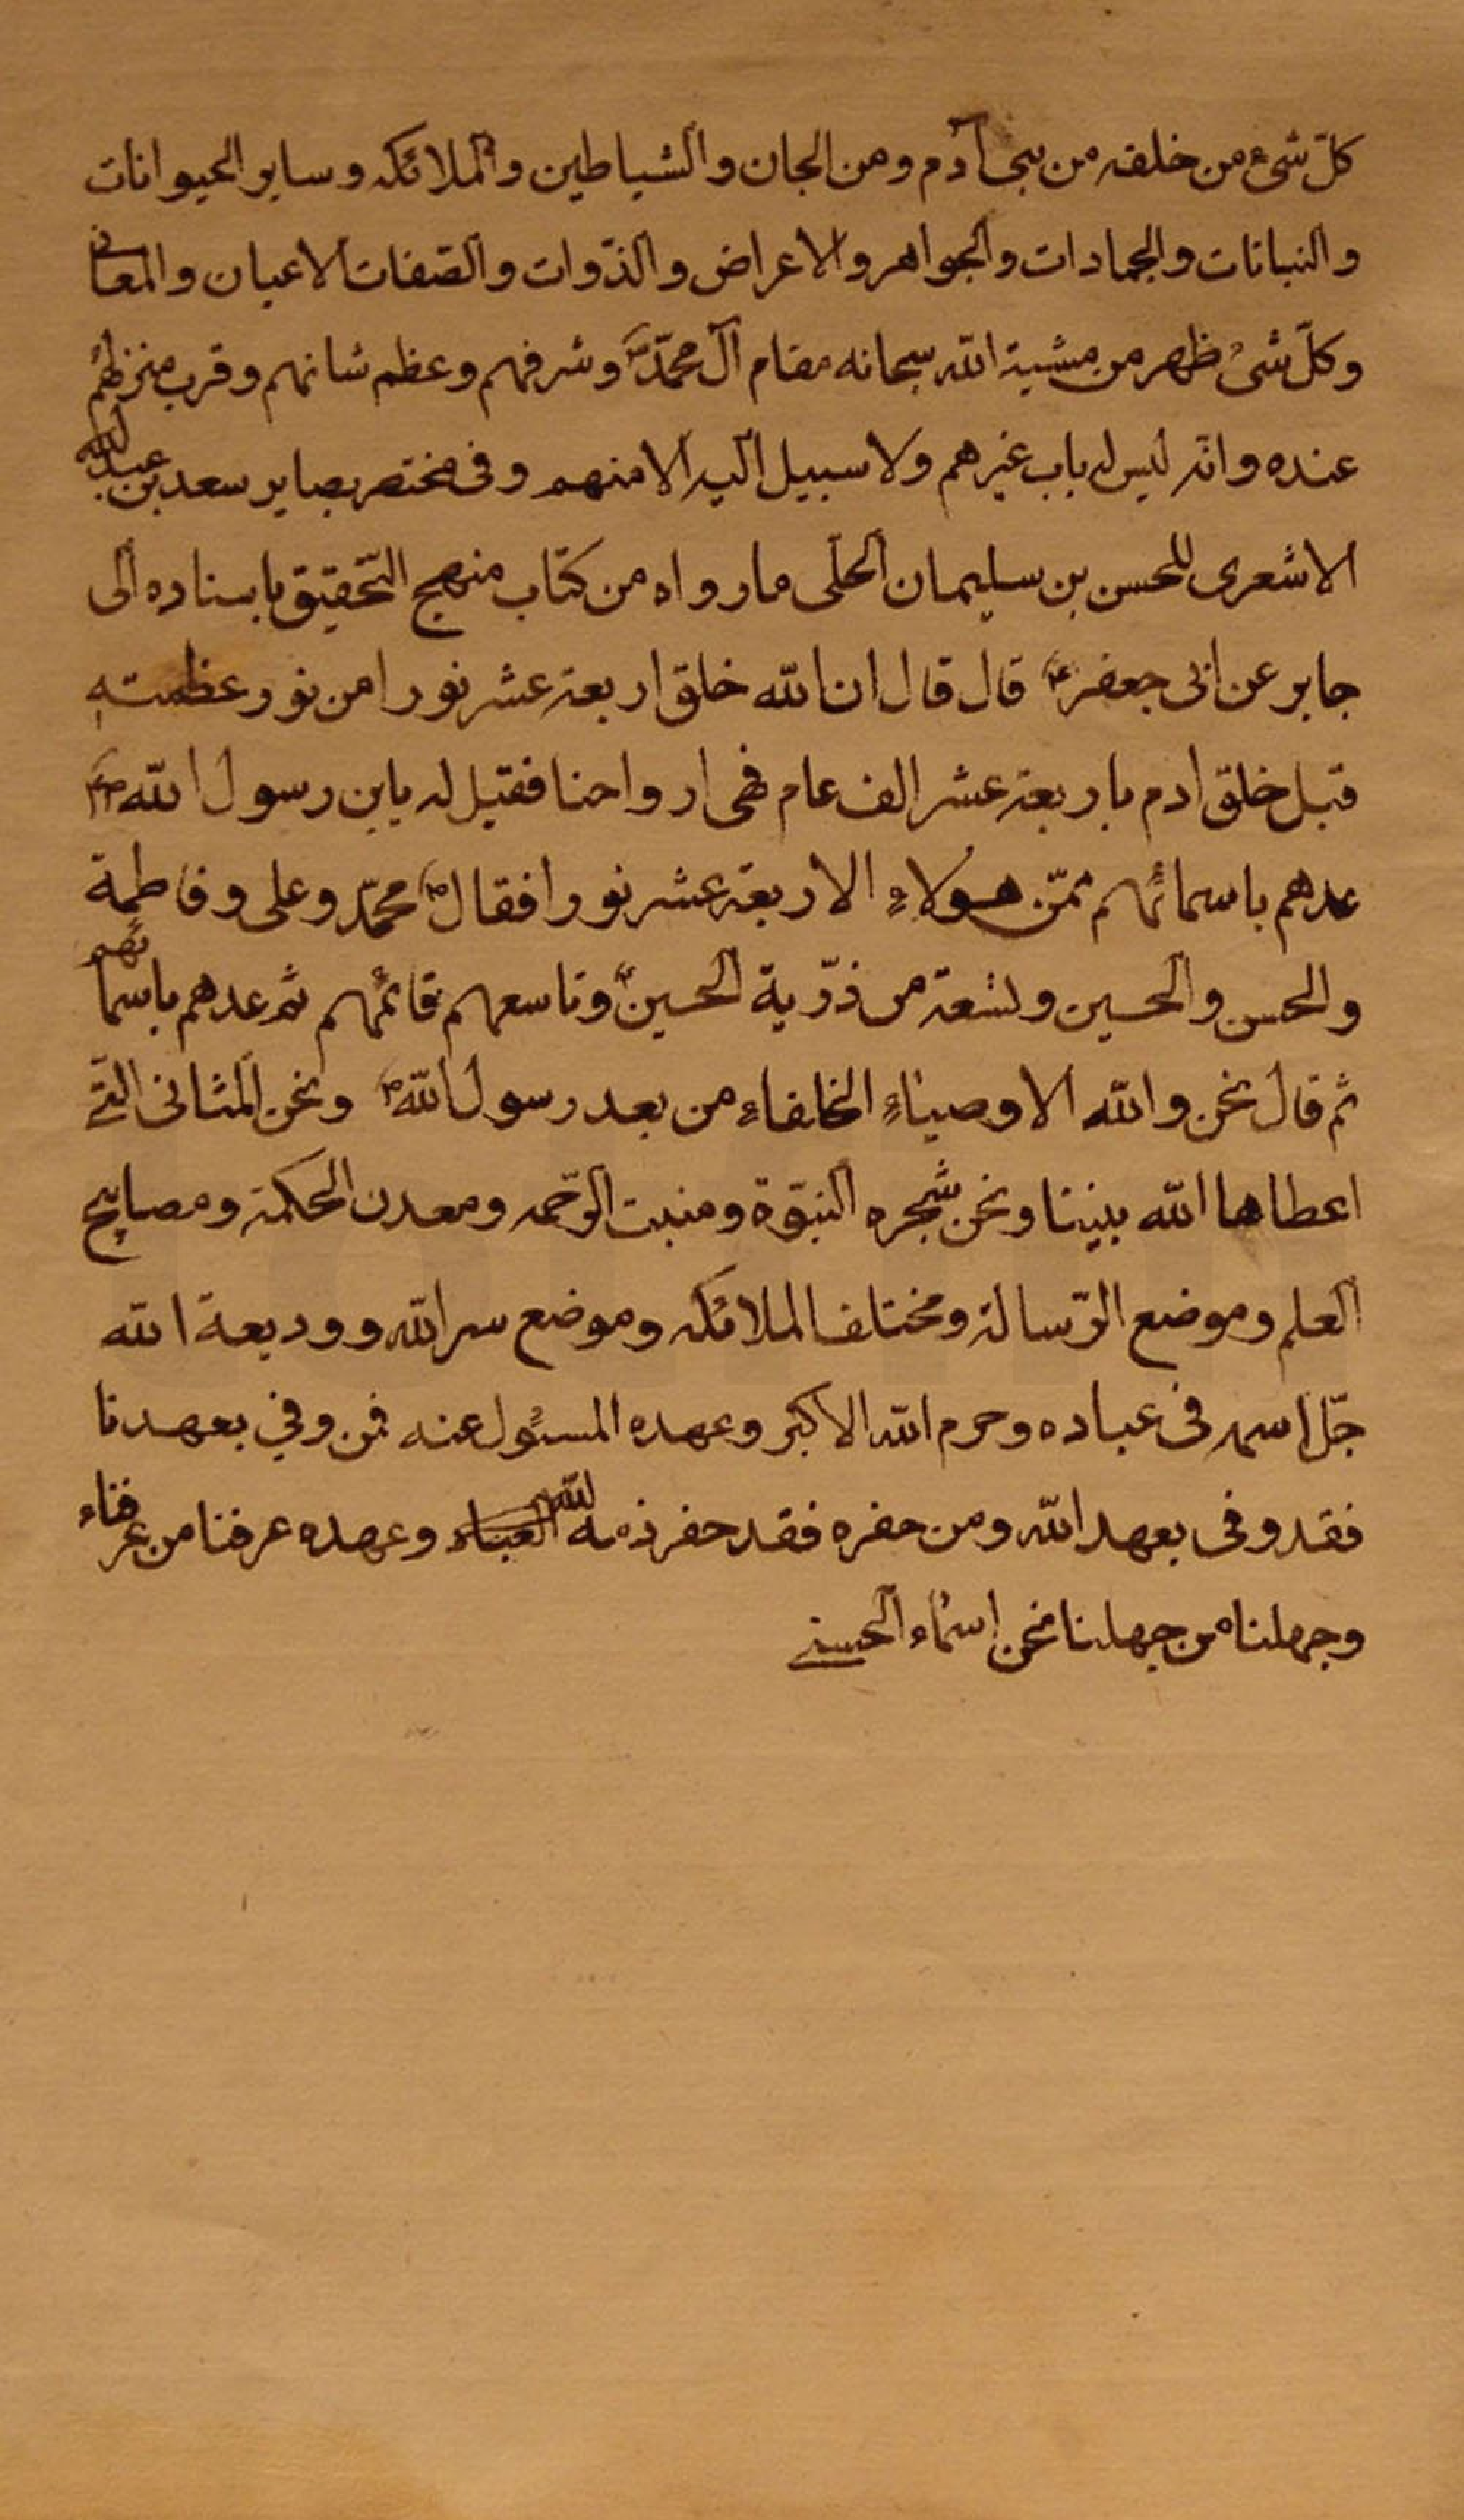 كلّ شیء من خلقه من بنی آدم ومن الجان والشیاطین والملائکه وسایر الحیوانات
والنباتات والجمادات والجواهر والاعراض والذّوات والصّفات الاعیان والمعانی
وکلّ شیء ظهر من مشیة الله سبحانه مقام آل محمّد ص وشرفهم وعظم شانهم وقرب منزلتهم
عنده وانه لیس له باب غیرهم ولا سبیل الیه الا منهم وفی مختصر بصایر سعد بن عبد الله
الاشعری للحسن بن سلیمان الحلّی ما رواه من کتاب منهج التّحقیق باسناده الی
جابر عن ابی جعفر ع قال قال ان الله خلق اربعة عشر نورا من نور عظمته
قبل خلق ادم باربعة عشر الف عام فهی ارواحنا فقیل له یابن رسول الله ص
عدهم باسمائهم فمن هولاءِ الاربعة عشر نورا فقال محمّد وعلی وفاطمة
والحسن والحسین وتسعة من ذرّیة الحسین ع وتاسعهم قائمهم ثم عدهم باسمائهم
ثم قال نحن والله الاوصیاءِ الخلفاء من بعد رسول الله ص ونحن المثانی التی
اعطاها الله نبینا ونحن شجره النبّوة ومنبت الرّحمه ومعدن الحکمة ومصابیح
العلم وموضع الرّسالة ومختلف الملائکه وموضع سر الله وودیعة الله
جلّ اسمه فی عباده وحرم الله الاکبر وعهده المسئول عنه فمن وفی بعهدنا
فقد وفی بعهد الله ومن خفره فقد خفر ذمه الله وعهده عرفنا من عرفناء
وجهلنا من جهلنا نحن اسماء الحسنی